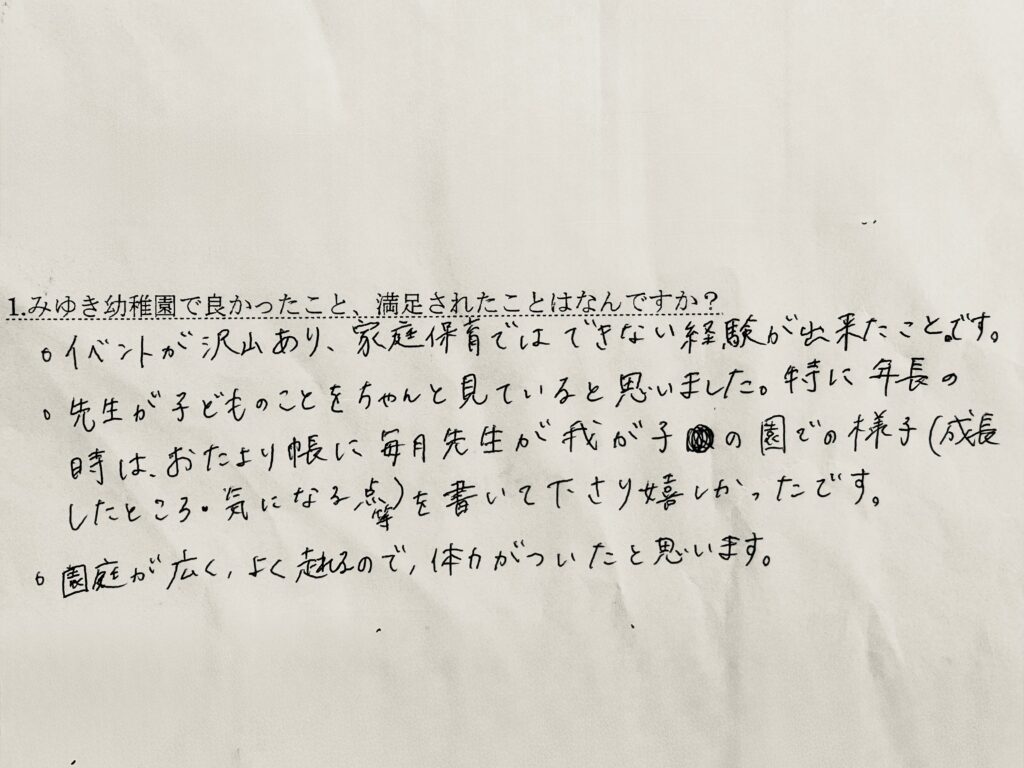 1.みゆき幼稚園で良かったこと、満足されたことはなんですか？
○ イベントが沢山あり、家庭保育ではできない経験が出来たことです。
○ 先生が子どものことをちゃんと見ていると思いました。特に年長の
時は、おたより帳に毎月先生が我が子の園での様子(成長
したところ・気になる点等)を書いて下さり嬉しかったです。
○ 園庭が広く、よく走れるので、体力がついたと思います。